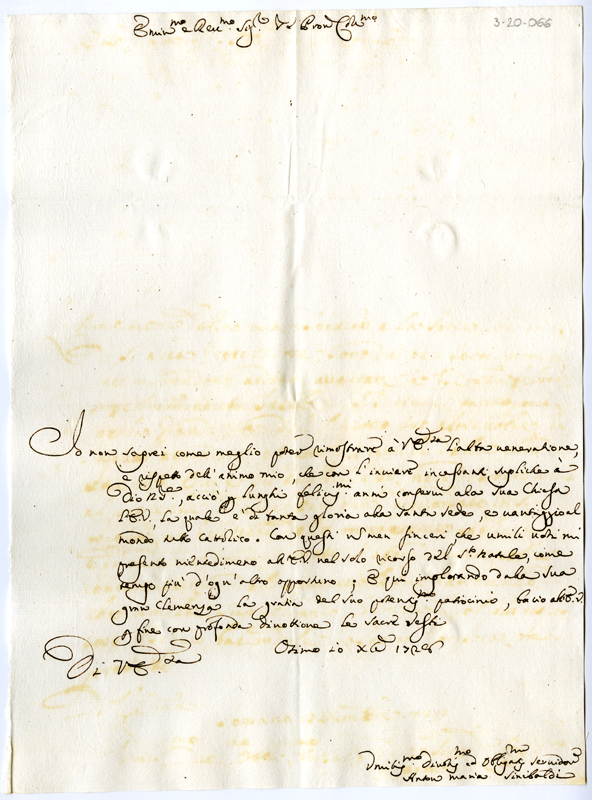 3-20-066
Emin.mo e Rev.mo Sig.re Sig.re Padron Col.mo
Io non saprei come meglio poter rimostrare à V.Em.za l'alta veneratione,
e rispetto dell'animo mio, che con l'inviare incessanti supliche a
Dio N.S.re, acciò p lunghi felicis.mi anni conservi alla sua Chiesa
l'E.V., la quale è di tanta gloria alla Santa Sede, e vantaggio al
mondo tutto Catolico. Con questi non men sinceri che umili voti mi
presento riveritemente all'E.V. nel solo ricorso del S.to Natale, come
tempo più d'ogn'altro opportuno; E qui implorando dalla sua
gran Clemenza la gratia del suo potentis.mo patrocinio, bacio all'E.V.
p fine con profonda divotione le Sacre vesti
Di V.Em.za
Osimo 10 Xbre 1726
Umilis.mo Divotis.mo ed Obligatis.mo Servidore
Anton Maria Sinibaldi